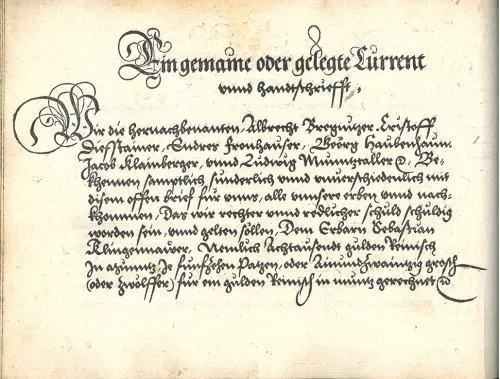 Ein gemaine oder gelegte Current
vnnd handtschriefft,
Wir die hernachbenanten, Albrecht Bregnitzer, Cristoff
Diefstainer, Endres Fronhauser, Geörg Haubenhaum,
Jacob Klainberger, vnnd Ludwig Munntzaller &, Be-
khennen samptlich sunderlich vnnd vnuerschiedenlich mit
disem offen brief für vnns, alle vnnsere erben vnnd nach-
khommen, Das wir rechter vnnd redlicher schuld schuldig
worden sein, vnnd gelten söllen, Dem Erbarn Sebastian
Klingennauer, Nemlich Achtausendt gulden Reinisch
In Je funfzehen Patzen, oder Ainundzwaintzig grosch
(oder zwölffer) für ein gulden Reinisch in muntz gerechnet